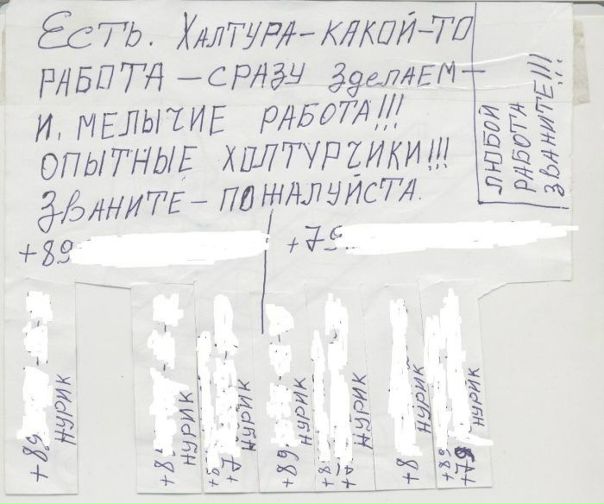 Есть. Халтура-какой-то
работа - сразу зделаем -
и. мелычие работа!!!
опытные холтурчики!!!
званите - пожалуйста.
любой
работа
званите!!!
+89
+79
+89 Нурик
+8 Нурик
+8
+7 Нурик
+89 Нурик
+8
+7 Нурик
+8 Нурик
+89
+79 Нурик